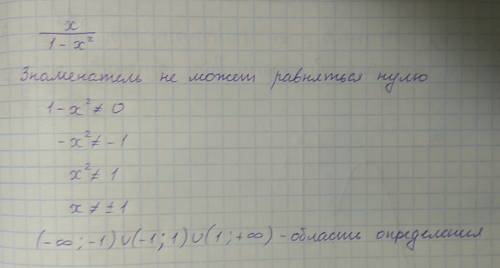 x
1 - x²
Знаменатель не может равняться нулю
1 - x² ≠ 0
-x² ≠ -1
x² ≠ 1
x ≠ ±1
(-∞; -1) ∪ (-1; 1) ∪ (1; +∞) - области определения